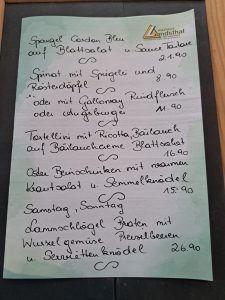 Landsthal
Spargel Cordon Bleu
auf Blattsalat u. Sauce Tartare
21.90
Spinat mit Spiegelei und
8.90
Rösterdäpfel
oder mit Galloway Rindfleisch
oder
11.90
Tortellini mit Ricotta, Bärlauch
auf Bärlauchcreme Blattsalat
16.90
Oder Beinschinken mit warmen
Krautsalat u. Semmelknödel
15.90
Samstag, Sonntag
Lammschlögel Braten mit
Wurzelgemüse Preiselbeeren
u. Serviettenknödel 26.90